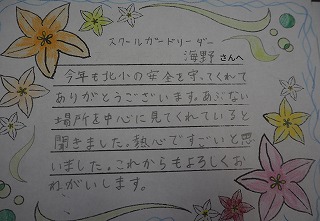 スクールガードリーダー
海野さんへ
今年も北小の安全を守ってくれて
ありがとうございます。あぶない
場所を中心に見てくれていると
聞きました。熱心ですごいと思
いました。これからもよろしくお
ねがいします。